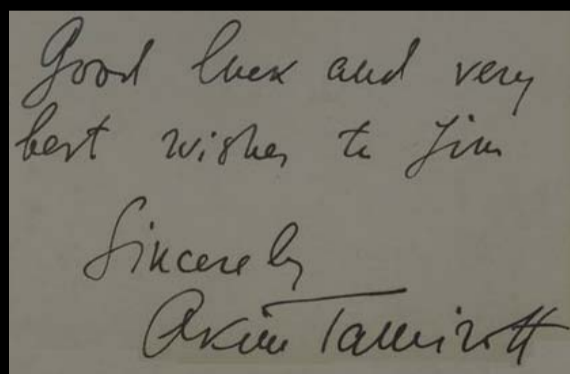 Good luck and very
best wishes to Jim
Sincerely
Akim Tamiroff